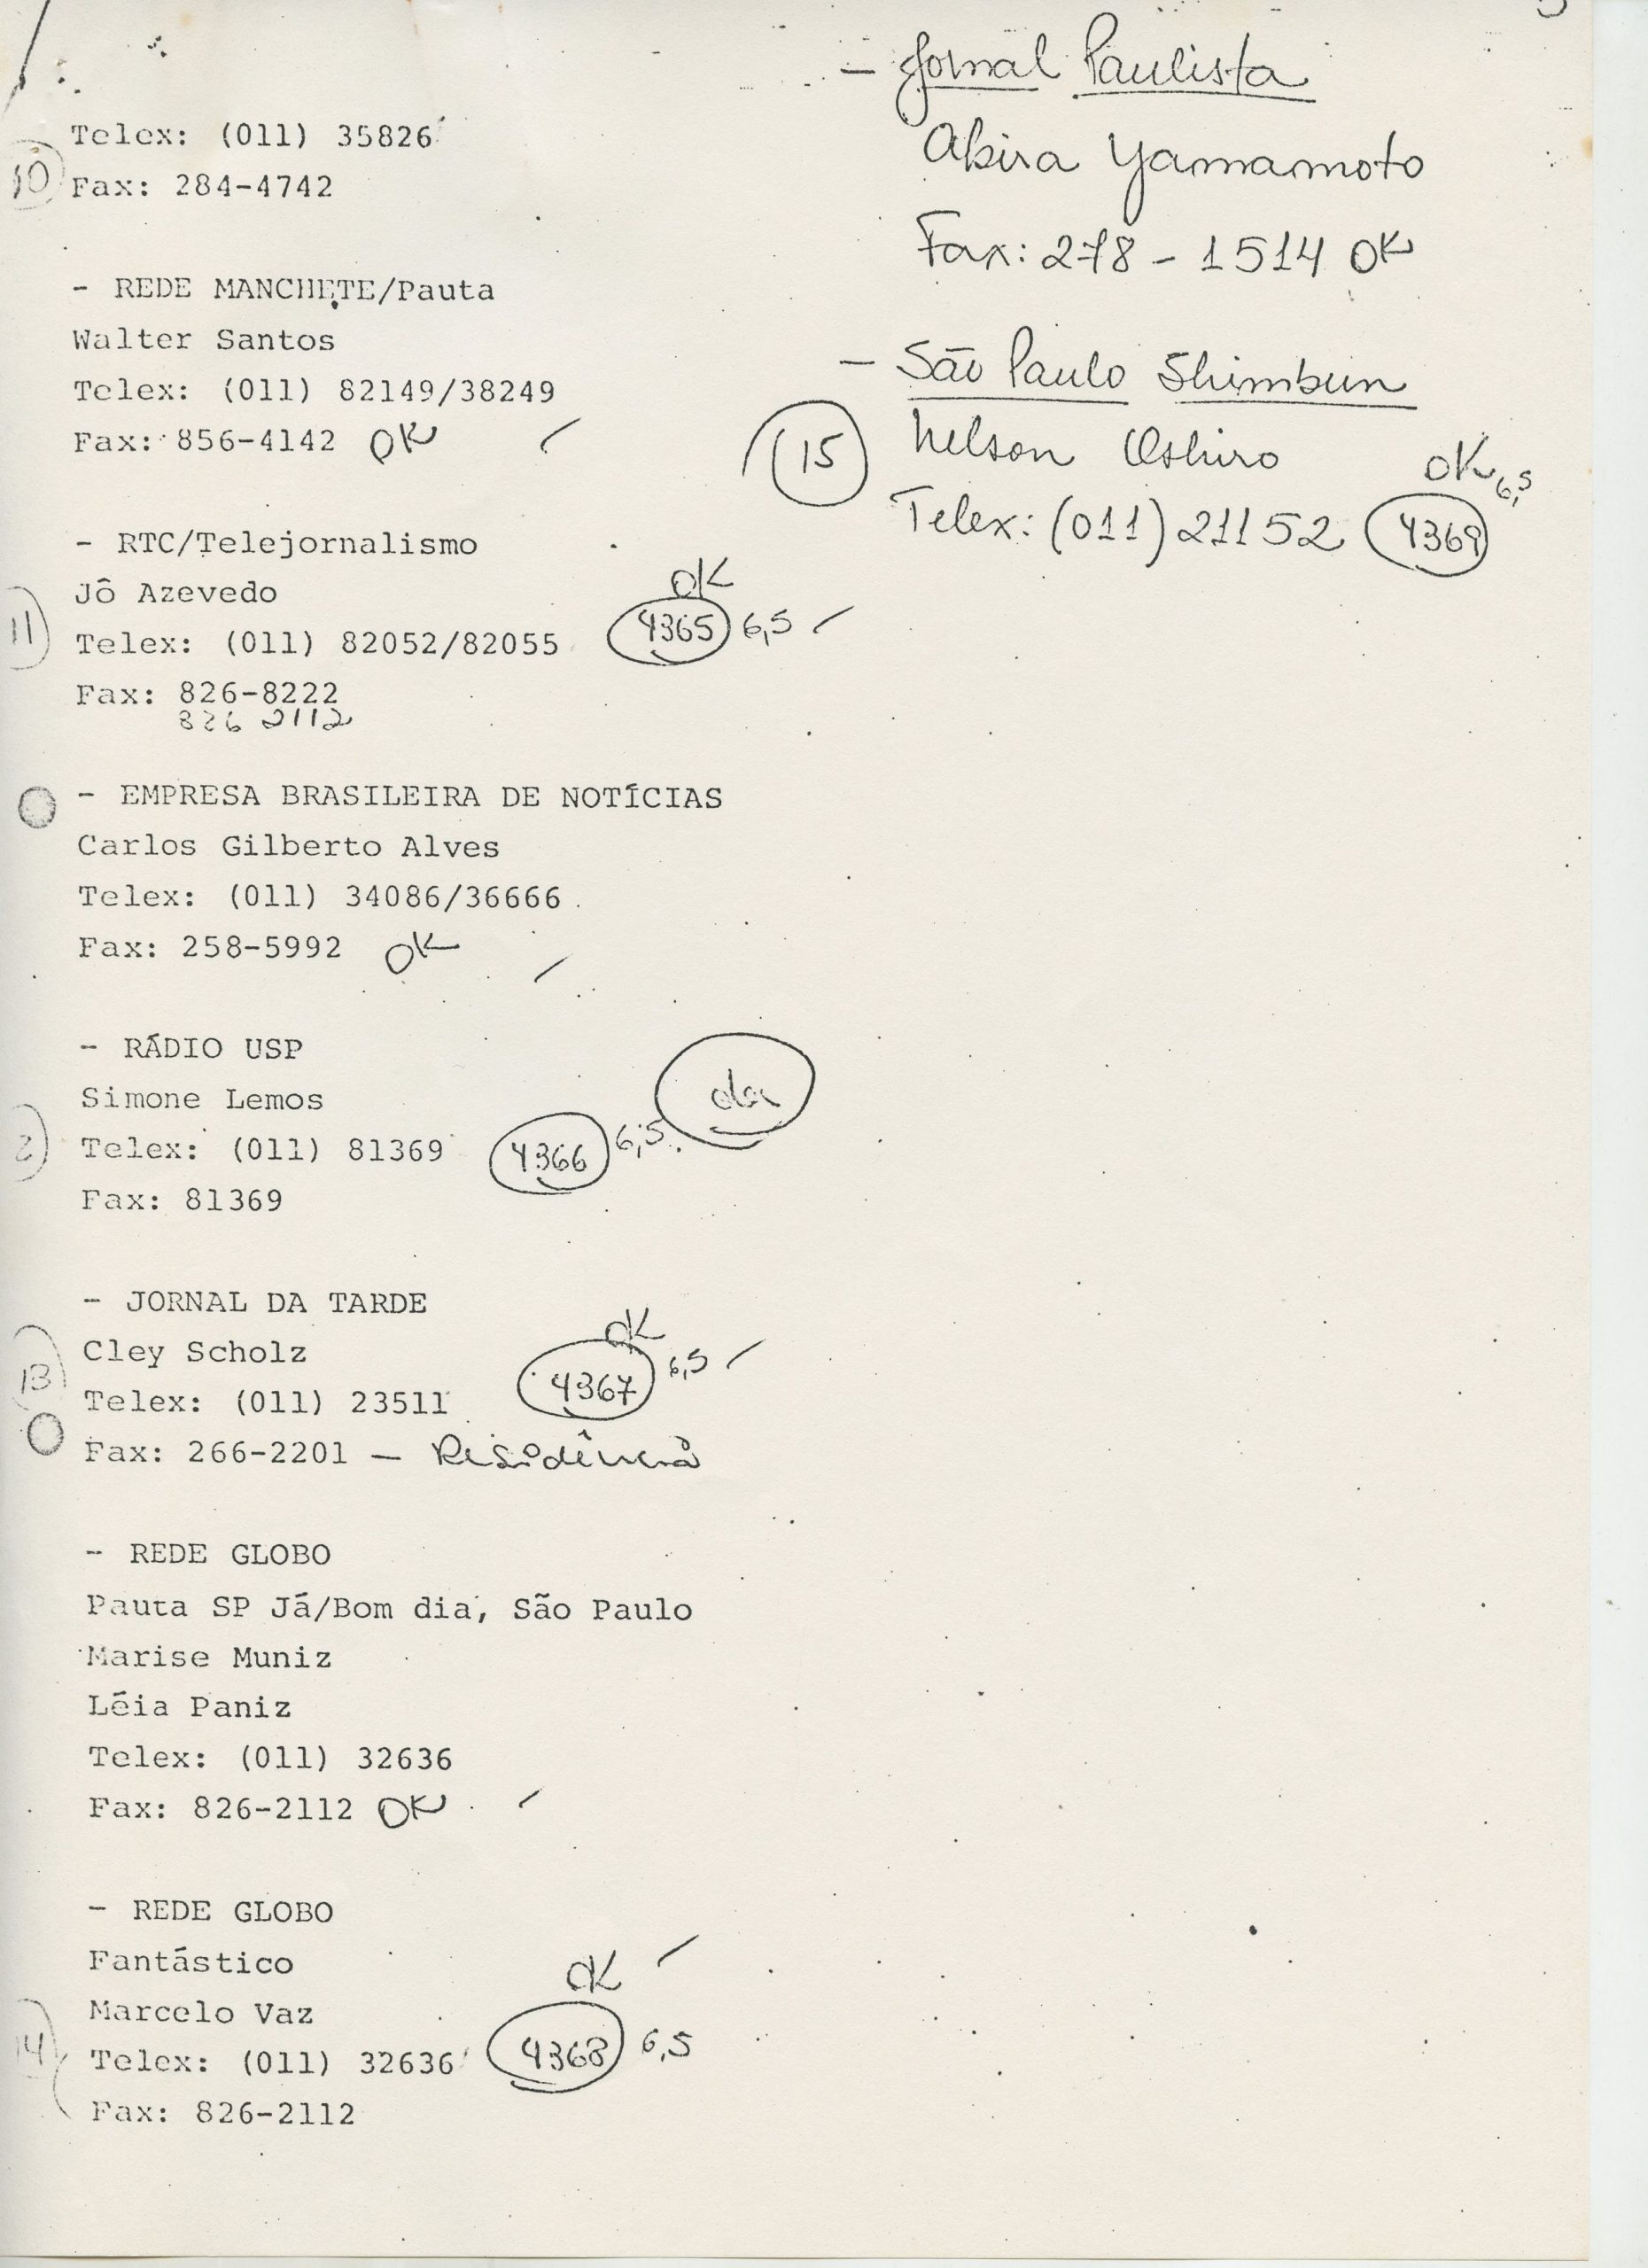 Telex: (011) 35826
10
Fax: 284-4742
- REDE MANCHETE/Pauta
Walter Santos
Telex: (011) 82149/38249
Fax: 856-4142 OK
- RTC/Telejornalismo
Jô Azevedo
OK
11
Telex: (011) 82052/82055 4365 6,5
Fax: 826-8222
826 2112
- EMPRESA BRASILEIRA DE NOTÍCIAS
Carlos Gilberto Alves
Telex: (011) 34086/36666
Fax: 258-5992 OK
- RÁDIO USP
Simone Lemos
2
Telex: (011) 81369 4366 6,5
Fax: 81369
- JORNAL DA TARDE
Cley Scholz
OK
13
Telex: (011) 23511 4367 6,5
Fax: 266-2201 — Residência
- REDE GLOBO
Pauta SP Já/Bom dia, São Paulo
Marise Muniz
Léia Paniz
Telex: (011) 32636
Fax: 826-2112 OK
- REDE GLOBO
Fantástico
OK
Marcelo Vaz
14
Telex: (011) 32636 4368 6,5
Fax: 826-2112
- Jornal Paulista
Akira Yamamoto
Fax: 278-1514 OK
- São Paulo Shimbun
15
Nelson Oshiro
OK 6,5
Telex: (011) 21152 4369